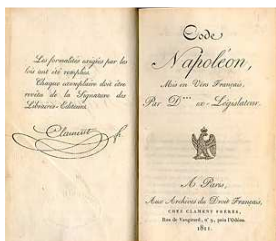 Les formalités exigées par les
lois ont été remplies.
Chaque exemplaire doit être
revêtu de la Signature des
Libraires-Editeurs.
Clament f.
Code
Napoléon,
Mis en Vers Français,
Par D*** ex-Législateur.
A Paris,
Aux Archives du Droit Français,
CHEZ CLAMENT FRÈRES,
Rue de Vaugirard, n° 9, près l'Odéon.
1811.